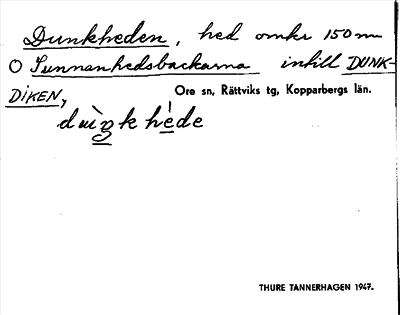 Dunkheden, hed omkr 150 m
O Sunnanhedsbackarna intill DUNK-
DIKEN,
Ore sn, Rättviks tg, Kopparbergs län.
THURE TANNERHAGEN 1947.